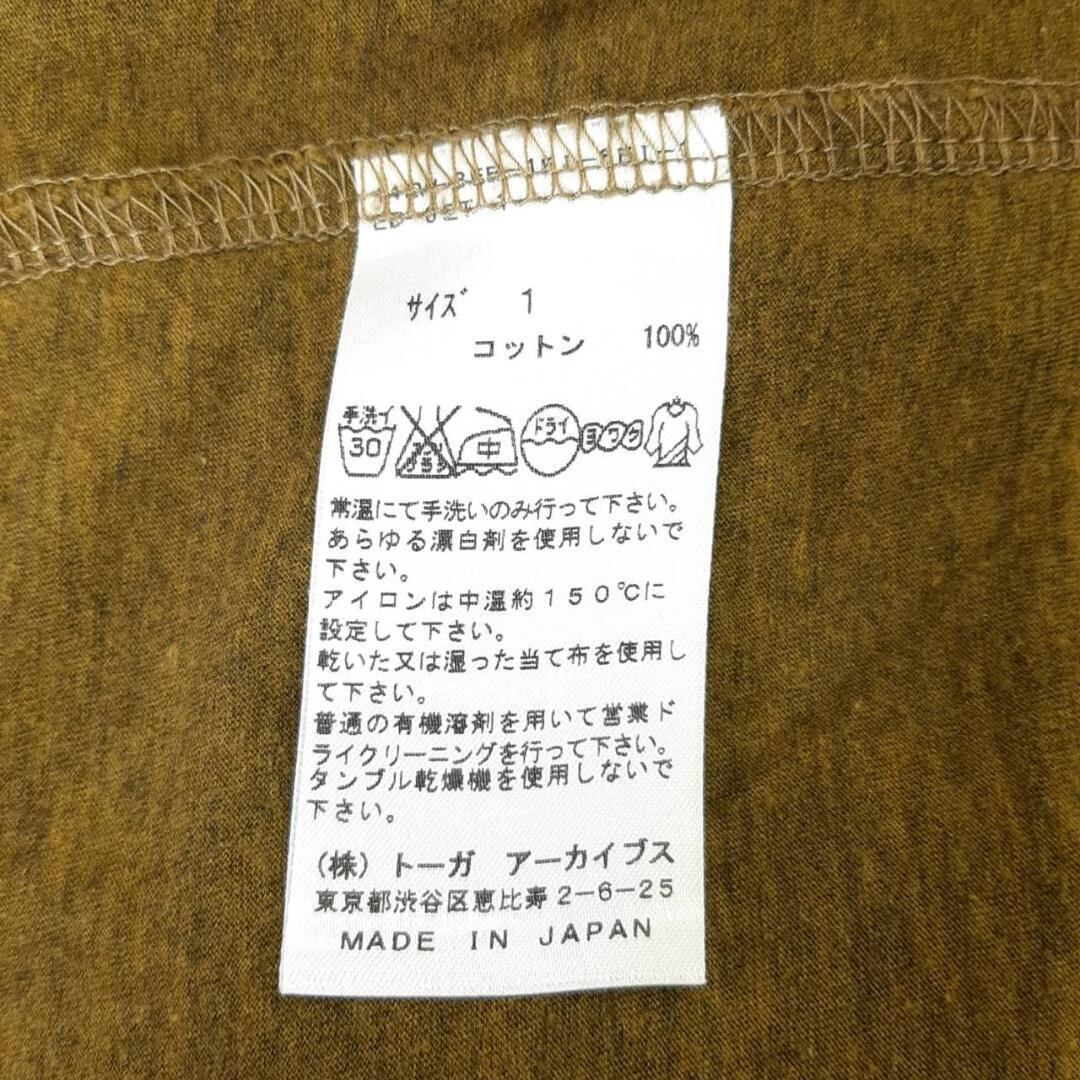 サイズ 1
コットン 100%
手洗イ
30
エンソ
サラシ
中
ドライ
ヨワク
常温にて手洗いのみ行って下さい。
あらゆる漂白剤を使用しないで
下さい。
アイロンは中温約150℃に
設定して下さい。
乾いた又は湿った当て布を使用し
て下さい。
普通の有機溶剤を用いて営業ド
ライクリーニングを行って下さい。
タンブル乾燥機を使用しないで
下さい。
(株)トーガ アーカイブス
東京都渋谷区恵比寿2-6-25
MADE IN JAPAN